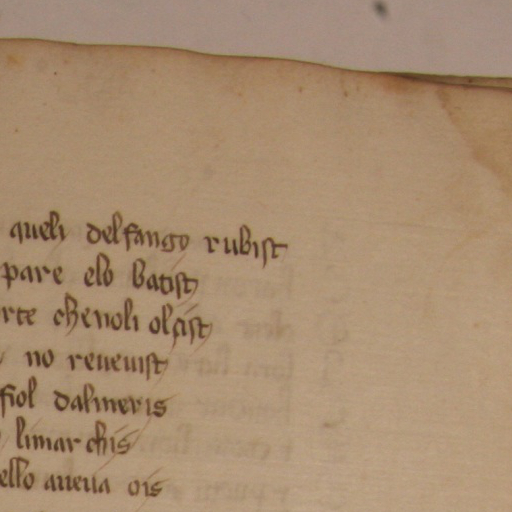 quely delfango rubist
pare elo batist
rte chenoli olcist
no reuenist
fiol dalmeris
limar chis
ello aueua ois